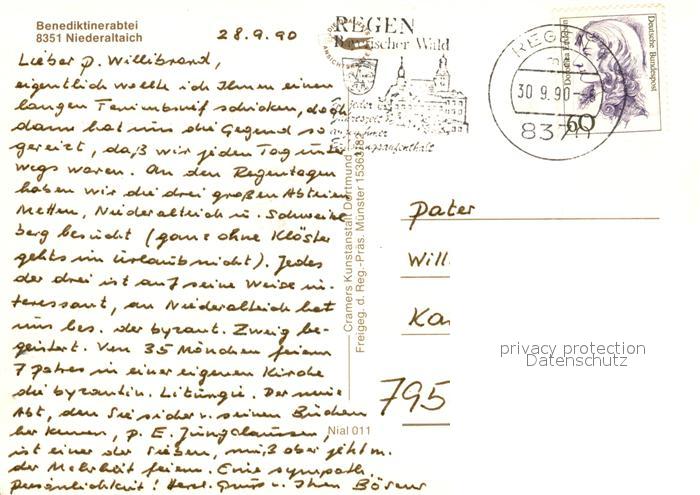 Benediktinerabtei
8351 Niederaltaich
28.9.90
Lieber P. Willibrand,
eigentlich wollte ich Ihnen einen
langen Ferienbrief schicken, doch
dann hat uns die Gegend so
gereizt, daß wir jeden Tag unter
wegs waren. An den Regentagen
haben wir die drei großen Abteien
Metten, Niederalteich u. Schweikl
berg besucht (ganz ohne Klöster
gehts im Urlaub nicht). Jedes
der drei ist auf seine Weise in-
teressant, an Niederalteich hat
uns bes. der byzant. Zweig be-
geistert. Von 35 Mönchen feiern
7 Patres in einer eigenen Kirche
die byzantin. Liturgie. Der neue
Abt, den Sie sicher v. seinen Büchern
her kennen, P. E. Jungclaussen,
ist einer der Sieben, muß aber jetzt m.
der Mehrheit feiern. Eine sympath.
Persönlichkeit! Herzl. Gruß v. Ihren Böseur
Cramers Kunstanstalt Dortmund
Freigeg. d. Reg.-Präs. Münster 15363/82
Nial 011
REGEN
Bayerischer Wald
REGEN
30.9.90-
837
60
Deutsche Bundespost
Pater
Will
Ka
795
privacy protection
Datenschutz